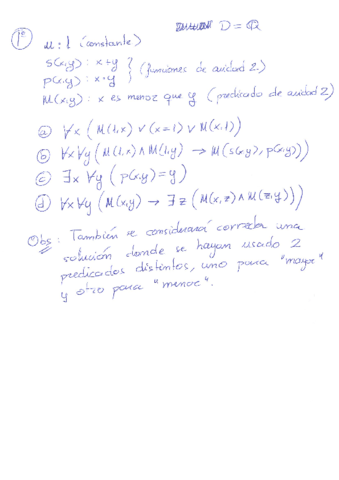 1º
D = ℚ
u: 1 (constante)
s(x,y): x+y
p(x,y): x·y
(funciones de aridad 2)
M(x,y): x es menor que y (predicado de aridad 2)
a) ∀x (M(1,x) ∨ (x=1) ∨ M(x,1))
b) ∀x ∀y (M(1,x) ∧ M(1,y) → M(s(x,y), p(x,y)))
c) ∃x ∀y (p(x,y)=y)
d) ∀x ∀y (M(x,y) → ∃z (M(x,z) ∧ M(z,y)))
Obs: También se considerará correcta una
solución donde se hayan usado 2
predicados distintos, uno para "mayor"
y otro para "menor".